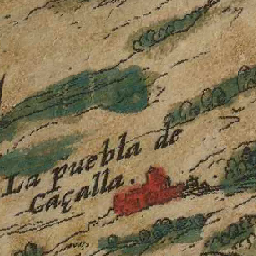 La puebla de
Caçalla.